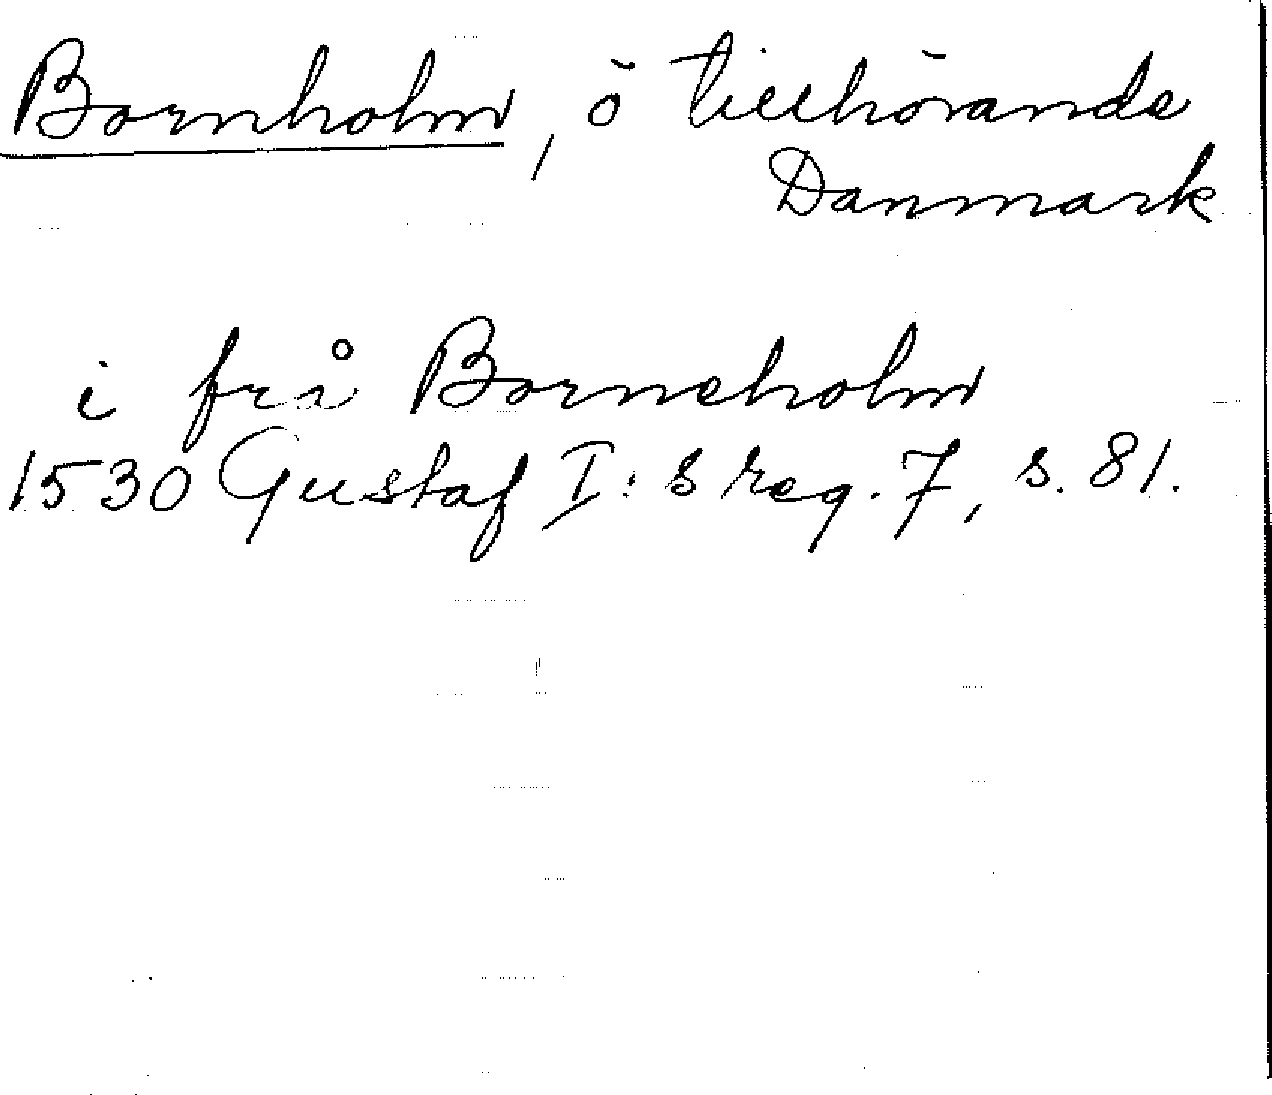 Bornholm, ö tillhörande
Danmark
i frå Borneholm
1530 Gustaf I:s reg. 7, s. 81.